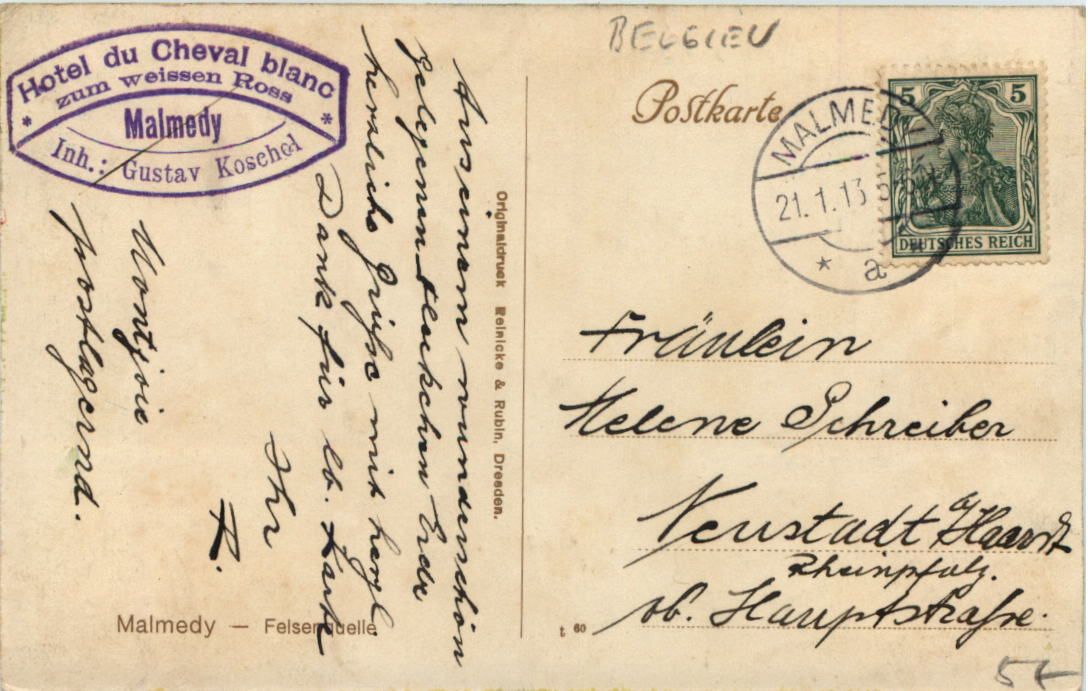 BELGIEN
Hotel du Cheval blanc
zum weissen Ross
* Malmedy *
Inh.: Gustav Koschel
Postkarte
MALMEDY
21.1.13
* a
5 5
DEUTSCHES REICH
Aus einem wunderschön
gelegenen Fleckchen Erde
herzliche Grüße mit herzl.
Dank für lb. Karte
Ihr
R.
Montjoie
postlagernd.
Originaldruck Reinicke & Rubin, Dresden.
Fräulein
Helene Schreiber
Neustadt a/Haardt
Rheinpfalz.
ob. Hauptstraße.
Malmedy — Felsenquelle
t 60